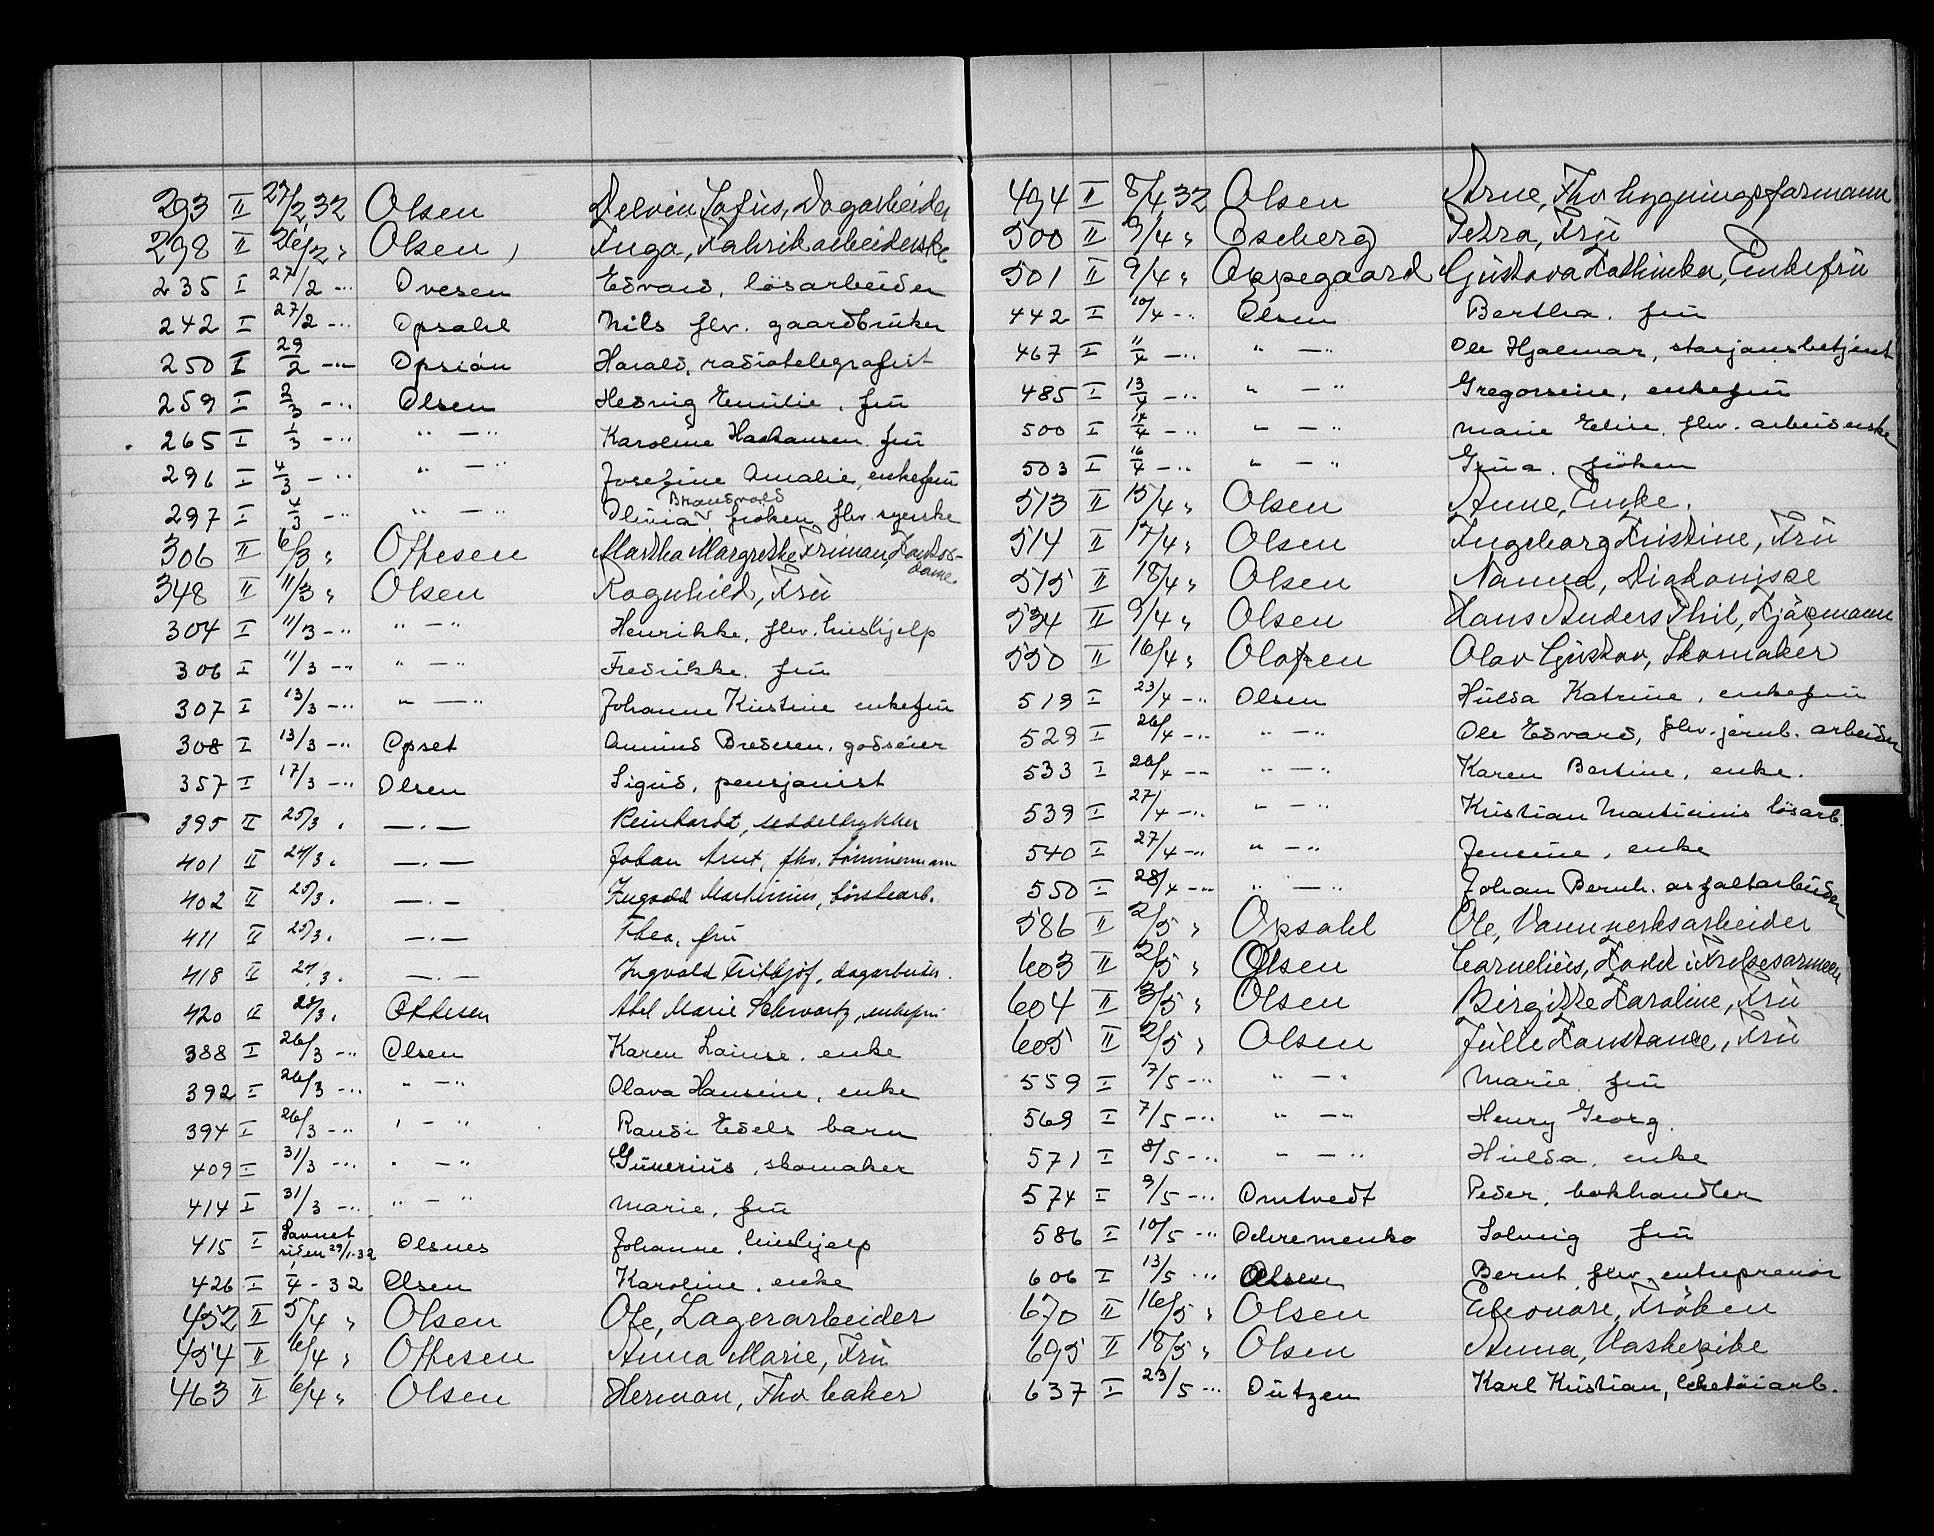 293 II 27/2 32 Olsen Delvin Sofus, Dagarbeider
298 II 26/2 " Olsen, Inga, Fabrikarbeiderske
235 I 27/2 -" Ovesen Edvard, løsarbeider
242 I 27/2 -" Opsahl Nils flv. gaardbruker
250 I 29/2 -" Opsian Harald, radiotelegrafist
259 I 2/3 -" Olsen Hedvig Emilie, fru
265 I 1/3 -" " - " Karoline Haakansen fru
296 I 4/3 -" " - " Josefine Amalie, enkefru
Brandvold
297 I 4/3 -" " - " Olivia frøken flv. syerske
306 II 6/3 " Ottesen Martha Margrethe Friman, Kontor-
dame
348 II 11/3 " Olsen Ragnhild, Fru
304 I 11/3 -" " - " Henrikke, flv. hushjelp
306 I 11/3 -" " - " Fredrikke, fru
307 I 13/3 -" " - " Johanne Kristine enkefru
308 I 13/3 -" Opset Amund Bredesen, godseier
357 I 17/3 -" Olsen Sigurd, pensjonist
395 II 25/3 " —"— Reinhardt, seddeltrykker
401 II 24/3 " —"— Johan Arnt, fhv. tømmermann
402 II 25/3 " —"— Ingvald Martinius, børstearb.
411 II 25/3 " —"— Thea, fru
418 II 27/3 " —"— Ingvald Frithjof, dagarbeider.
420 II 28/3 " Ottesen Abel Marie Schwartz, enkefru
388 I 26/3 -" Olsen Karen Louise, enke
392 I 26/3 -" " - " Olava Hansine, enke
394 I 26/3 -" " - " Randi Edels barn
409 I 31/3 -" " - " Gunerius, skomaker
414 I 31/3 -" " - " Marie, fru
415 I Savnet siden 29/1-32 Olsnes Johanne, hushjelp
426 I 1/4 - 32 Olsen Karoline, enke
452 II 5/4 " Olsen Ole, Lagerarbeider
454 II 6/4 " Ottesen Anna Marie, Fru
463 II 6/4 " Olsen Herman, Fhv baker
494 II 8/4 32 Olsen Arne, Fhv bygningsformann
500 II 9/4 " Oseberg Petra, Fru
501 II 9/4 " Oppegaard Gustava Kathinka, Enkefru
442 I 10/4 -" Olsen Bertha, fru
467 I 11/4 -" " - " Ole Hjalmar, stasjonsbetjent
485 I 13/4 -" " - " Gregorsine, enkefru
500 I 14/4 -" " - " Marie Elise, flv. arbeiderske
503 I 16/4 -" " - " Grua, frøken
513 II 15/4 " Olsen Anne, Enke.
514 II 17/4 " Olsen Ingeborg Kristine, Fru
515 II 18/4 " Olsen Nanna, Diakonisse
534 II 9/4 " Olsen Hans Anders Thil, Kjøpmann
550 II 16/4 " Olafsen Olav Gustav, Skomaker
519 I 23/4 -" Olsen Hulda Katrine, enkefru
529 I 26/4 -" " - " Ole Edvard, flv. jernb. arbeider
533 I 26/4 -" " - " Karen Bertine, enke.
539 I 27/4 -" " - " Kristian Martinius løsarb.
540 I 27/4 -" " - " Jensine, enke
550 I 28/4 -" " - " Johan Bernh. asfaltarbeider
586 II 2/5 " Opsahl Ole, Vannverksarbeider
603 II 2/5 " Olsen Cornelius, Kadet i Frelsesarmeen
604 II 3/5 " Olsen Birgitte Karoline, Fru
605 II 2/5 " Olsen Julle Konstance, Fru
559 I 7/5 -" " - " Marie, fru
569 I 7/5 -" " - " Henry Georg.
571 I 8/5 -" " - " Hulda, enke
574 I 9/5 -" Omtvedt Peder, bokhandler
586 I 10/5 -" Ochremenko Solveig fru
606 I 13/5 -" Olsen Bernt flv. entreprenør
670 II 16/5 " Olsen Eleonore, Frøken
695 II 18/5 " Olsen Anna, Vaskepike
637 I 23/5 -" Outzen Karl Kristian, leketøiarb.